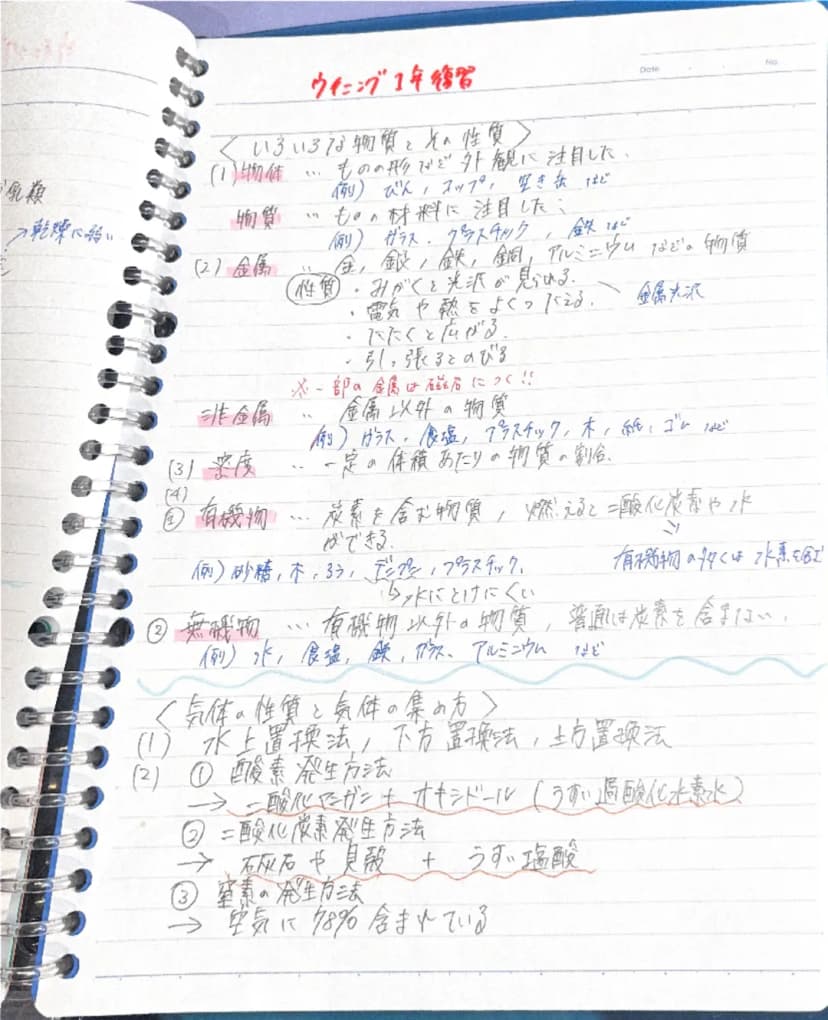 乳類
→乾燥に弱い
Date ・ ・ No.
ウイニング1年復習
〈いろいろな物質とその性質〉
(1) 物体 … ものの形など外観に注目した.
例) びん, コップ, 空き缶 など
物質 … ものの材料に注目した
例) ガラス, プラスチック, 鉄 など
(2) 金属 … 金, 銀, 鉄, 銅, アルミニウム などの物質
性質 ・みがくと光沢が見られる. 金属光沢
・電気や熱をよくつたえる.
・たたくと広がる.
・引っ張るとのびる
※一部の金属は磁石につく!!
非金属 … 金属以外の物質
例) ガラス, 食塩, プラスチック, 木, 紙, ゴム など
(3) 密度 … 一定の体積あたりの物質の割合.
(4)
① 有機物 … 炭素を含む物質, 燃えると二酸化炭素や水
ができる.
有機物の多くは水素を含む
例) 砂糖, 木, ろう, デンプン, プラスチック,
↳水にとけにくい
② 無機物 … 有機物以外の物質, 普通は炭素を含まない.
例) 水, 食塩, 鉄, ガラス, アルミニウム など
〈気体の性質と気体の集め方〉
(1) 水上置換法, 下方置換法, 上方置換法
(2) ① 酸素発生方法
→ 二酸化マンガン + オキシドール (うすい過酸化水素水)
② 二酸化炭素発生方法
→ 石灰石や貝殻 + うすい塩酸
③ 窒素の発生方法
→ 空気に78%含まれている